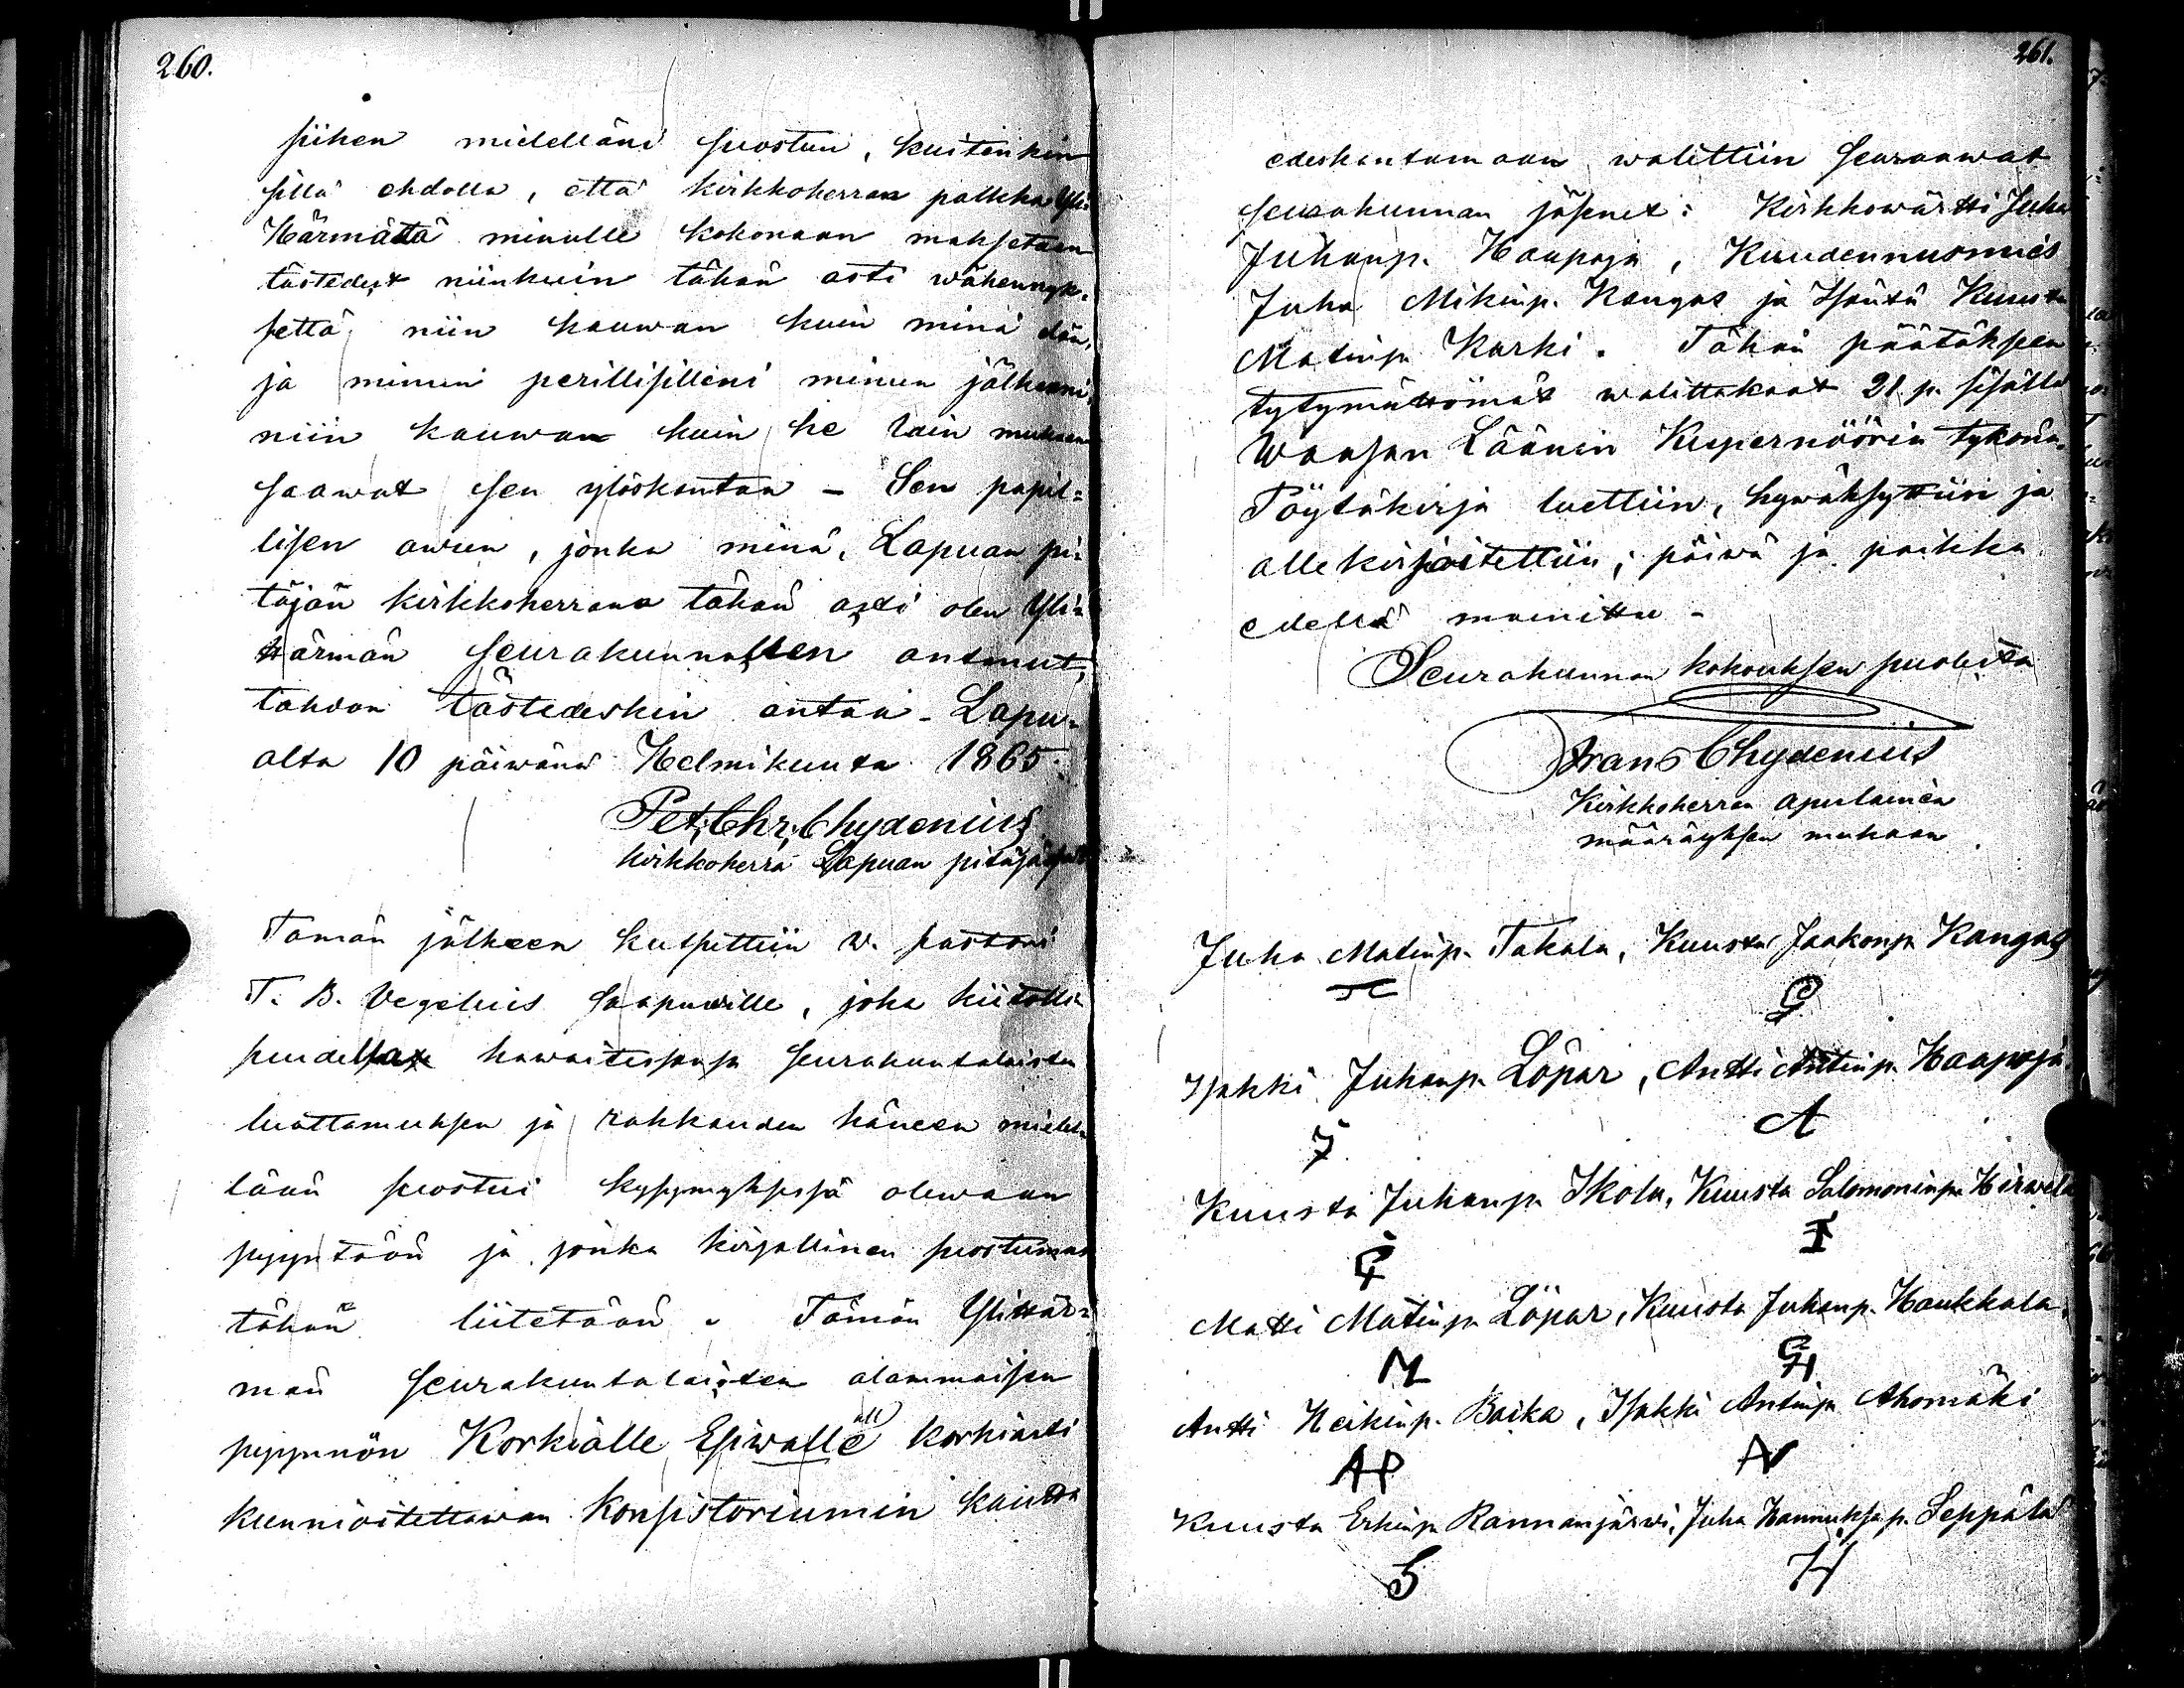 260.
siihen mielelläni suostun, kuitenkin
sillä ehdolla, että kirkkoherran palkka Yli-
Härmästä minulle kokonaan maksetaan
tästedest niinkuin tähän asti wähennyk-
settä niin kauwan kuin minä elän,
ja minun perillisilleni minun jälkeeni,
niin kauwan kuin he lain mukaan
saawat sen ylöskantaa – Sen papil=
lisen awun, jonka minä, Lapuan pi=
täjän kirkkoherrana tähän asti olen Yli=
Härmän seurakunnallen antanut,
tahdon tästedeskin antaa – Lapu=
alta 10 päiwänä Helmikuuta 1865.
Pet. Chr. Chydenius
kirkkoherra Lapuan pitäjäs
Tämän jälkeen kutsuttiin w. pastori
T. B. Vegelius saapuwille, joka kiitolli
suudella hawaitessansa seurakuntalaisten
luottamuksen ja rakkauden häneen mielel
lään suostui kysymyksessä olewaan
pyyntöön ja jonka kirjallinen suostumus
tähän liitetään. Tämän Ylihär=
män seurakuntalaisten alammaisen
pyynnön Korkialle Esiwallalle korkiasti
kunnioitettawan Konsistoriumin kautta
261.
edeskantamaan walittiin seuraawat
seurakunnan jäsenet: Kirkkowärtti Juha
Juhanp. Haapoja, Kuudennusmies
Juha Mikinp. Kangas ja Isäntä Kuusta
Matinp. Karhi. Tähän päätöksen
tytymättömät walittakaat 21 p. sisällä
Waasan Läänin Kupernöörin tykönä.
Pöytäkirja luettiin, hywäksyttiin ja
allekirjoitettiin; päiwä ja paikka
edellä mainittu –
Seurakunnan kokouksen puolesta
Frans Chydenius
Kirkkoherran apulainen
määräyksen mukaan.
Juha Matinp. Takala, Kuusta Jaakonp. Kangas
Isakki Juhanp. Löpar, Antti Antinp. Haapoja
J A
Kuusta Juhanp. Ikola, Kuusta Salomoninp. Hirwelä
G I
Matti Matinp. Löpar, Kuusta Juhanp. Haukkala.
M
Antti Heikinp. Paika, Isakki Antinp. Ahomäki
AP
Kuusta Erkinp. Rannanjärwi, Juha Hannuksp. Seppälä
S H